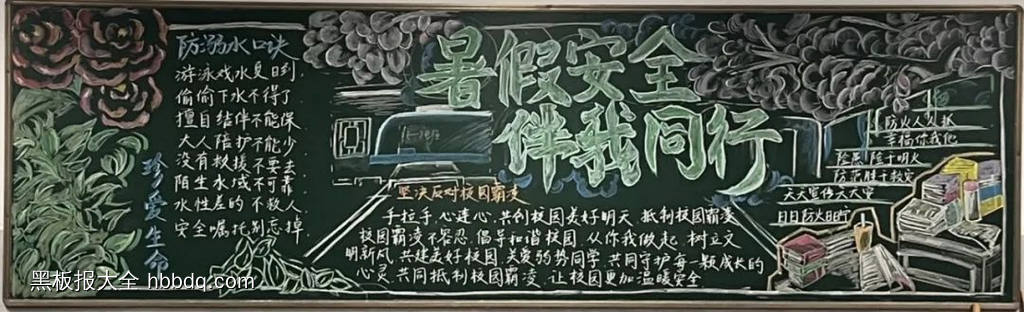 防溺水口诀
游泳戏水夏日到
偷偷下水不得了
擅自结伴不能保
大人陪护不能少
没有救援不要去
陌生水域不可靠
水性差的不救人
安全嘱托别忘掉
珍爱生命
暑假安全
伴我同行
坚决反对校园霸凌
手拉手,心连心,共创校园美好明天 抵制校园霸凌
校园霸凌不容忍,倡导和谐校园,从你我做起,树立文
明新风,共建美好校园,关爱弱势同学,共同守护每一颗成长的
心灵,共同抵制校园霸凌,让校园更加温暖安全
防火人人抓
幸福你我他
隐患险于明火
防范胜于救灾
天天宣传天天安
日日防火日日
黑板报大全 hbbdq.com